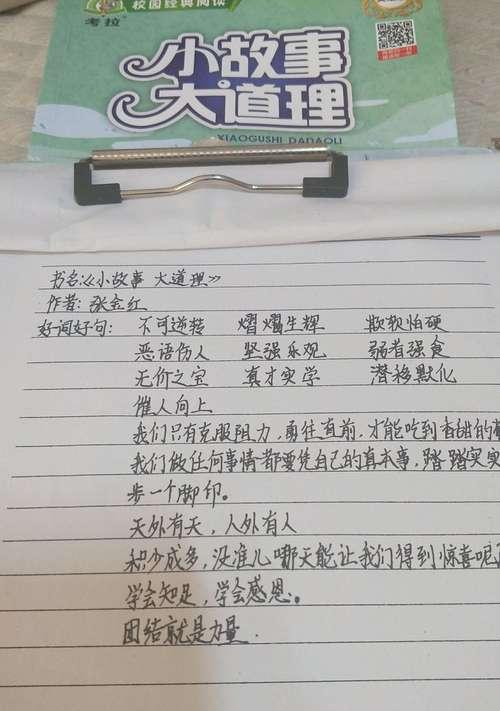 校园经典阅读
考拉
小故事
大道理
XIAOGUSHI DADAOLI
书名:《小故事 大道理》
作者: 张金红
好词好句: 不可逆转 熠熠生辉 欺软怕硬
恶语伤人 坚强乐观 弱者强食
无价之宝 真才实学 潜移默化
催人向上
我们只有克服阻力,勇往直前,才能吃到香甜的
我们做任何事情都要凭自己的真本事,踏踏实实
步一个脚印。
天外有天,人外有人
积少成多,没准儿哪天能让我们得到惊喜呢
学会知足,学会感恩。
团结就是力量.